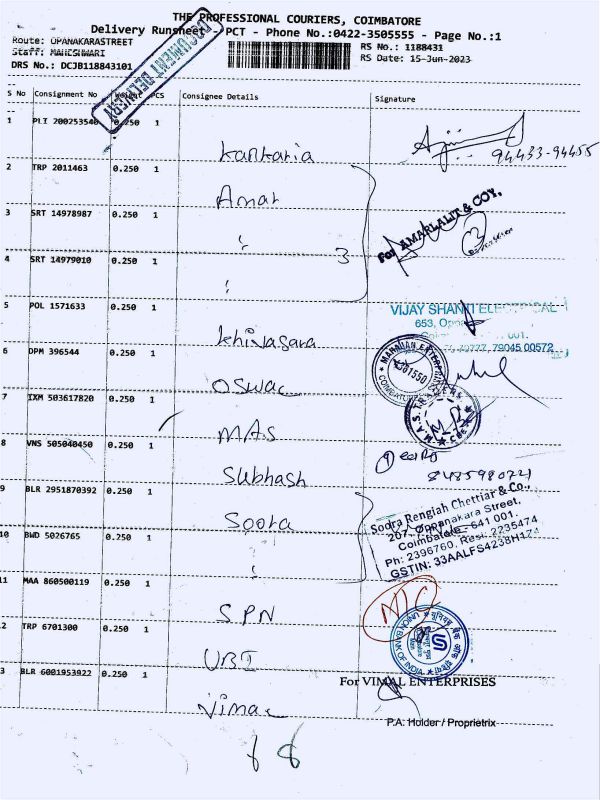 THE PROFESSIONAL COURIERS, COIMBATORE
Delivery Runsheet - PCT - Phone No.:0422-3505555 - Page No.:1
Route: OPANAKARASTREET
RS No.: 1188431
Staff: MAHESHWARI
RS Date: 15-Jun-2023
DRS No.: DCJB118843101
DOCUMENT DELIVERY
S No Consignment No Weight PCS Consignee Details Signature
1 PLI 200253540 0.250 1
Kankaria
94433-94455
2 TRP 2011463 0.250 1
Amar
For AMARLALIT & COY.
3 SRT 14978987 0.250 1
3
4 SRT 14979010 0.250 1
5 POL 1571633 0.250 1
VIJAY SHANTI ELECTRICAL
653,
001.
79045 00572
Khivasara
6 DPM 396544 0.250 1
Oswal
7 IXM 503617820 0.250 1
MAS
M.A.S. TRADERS
8 VNS 505040450 0.250 1
Subhash
8485980221
9 BLR 2951870392 0.250 1
Soora
Soora Rengiah Chettiar & Co.,
207, Oppanakara Street,
Coimbatore - 641 001.
Ph: 2396760, Resi: 2235474
10 BWD 5026765 0.250 1
GSTIN: 33AALFS4238H1
11 MAA 860500119 0.250 1
SPN
N/C
12 TRP 6701300 0.250 1
UBI
यूनियन बैंक ऑफ इंडिया
UNION BANK OF INDIA
13 BLR 6001953922 0.250 1
For VIMAL ENTERPRISES
Vimal
P.A. Holder / Proprietrix